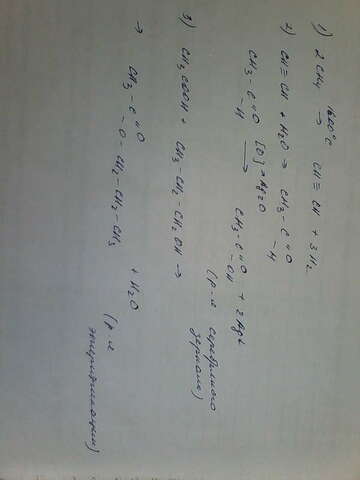 1) 2CH4 1600°C → CH≡CH + 3H2
2) CH≡CH + H2O → CH3-C=O
-H
CH3-C=O [O] + Ag2O → CH3-C=O + 2Ag↓
-H -OH
(р-я серебряного
зеркала)
3) CH3COOH + CH3-CH2-CH2OH →
→ CH3-C=O + H2O
-O-CH2-CH2-CH3
(р-я
этерификации)